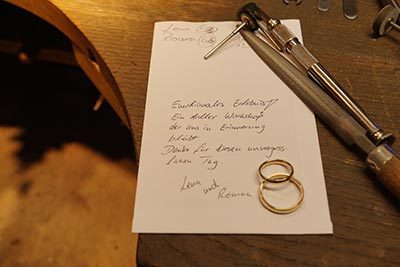 Lena
Roman
Emotionales Erlebnis!
Ein toller Workshop
der uns in Erinnerung
bleibt.
Danke für diesen unvergess-
lichen Tag
Lena
und
Roman